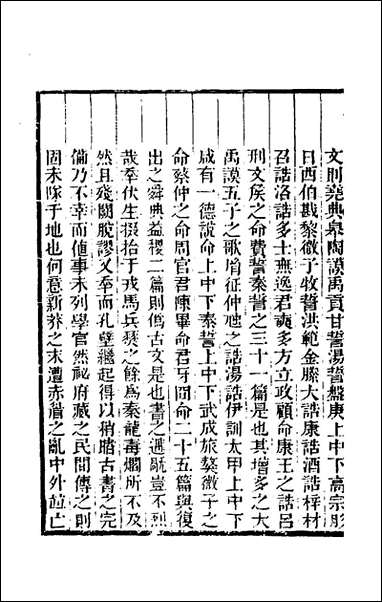 文則堯典皋陶謨禹貢甘誓湯誓盤庚上中下高宗肜
日西伯戡黎微子牧誓洪範金縢大誥康誥酒誥梓材
召誥洛誥多士無逸君奭多方立政顧命康王之誥呂
刑文侯之命費誓秦誓之三十一篇是也其增多之大
禹謨五子之歌嗣征仲虺之誥湯誥伊訓太甲上中下
咸有一德說命上中下泰誓上中下武成旅獒微子之
命蔡仲之命周官君陳畢命君牙冏命二十五篇與復
出之舜典益稷二篇則偽古文是也書之遞厄豈不烈
哉幸伏生掇拾于戎馬兵燹之餘為秦龍毒燗所不及
然且殘闕脫謬又幸而孔壁繼起得以稍賭古書之完
備乃不幸而值事未列學官然祕府藏之民間傳之則
固未喙于地也何意新莽之末遭赤眉之亂中外並亡